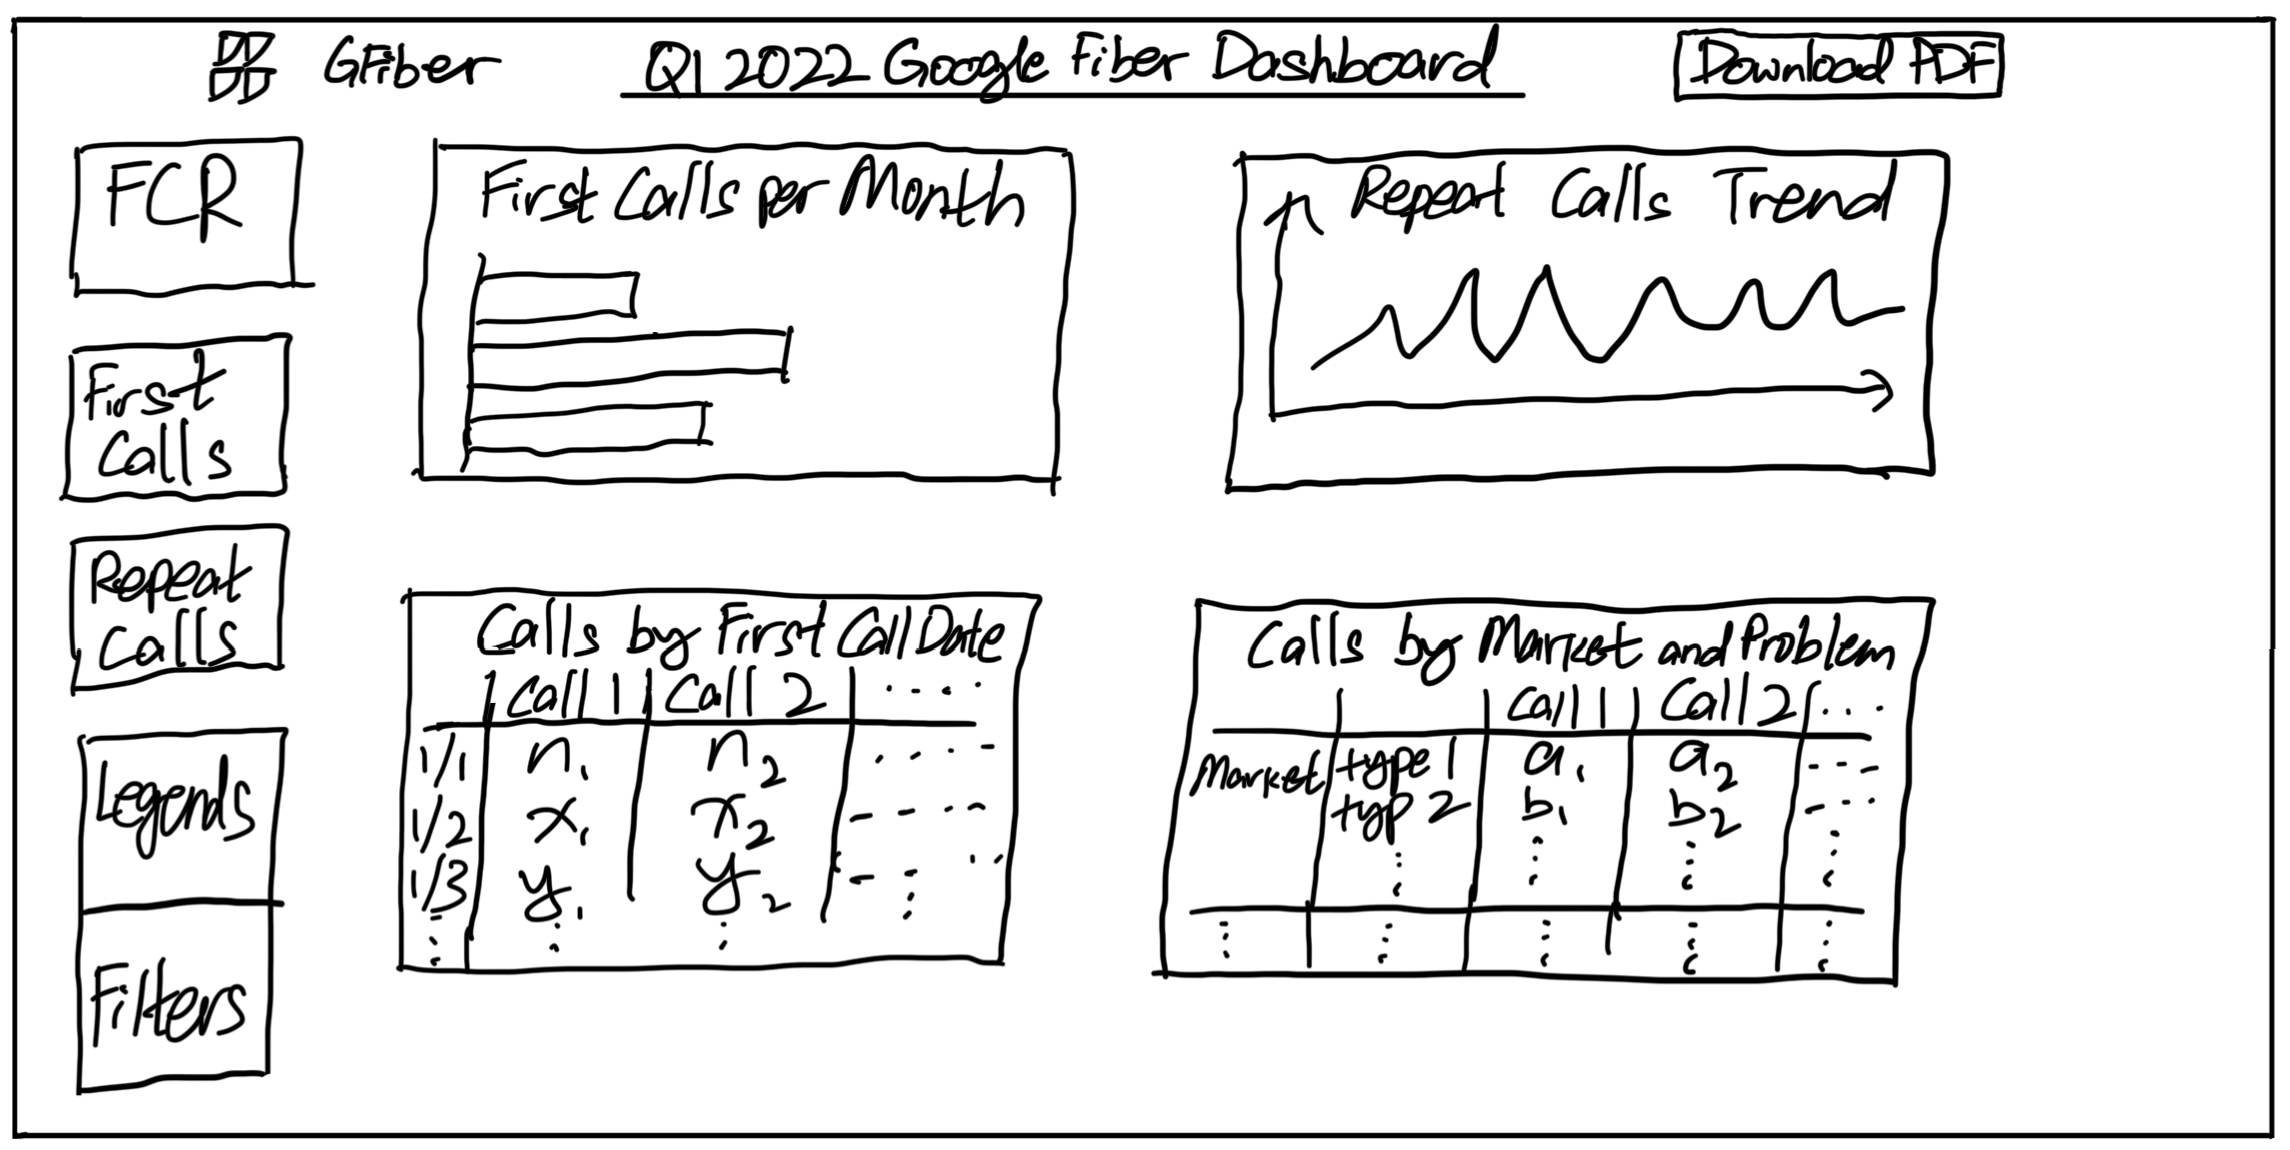 GFiber Q1 2022 Google Fiber Dashboard Download PDF
FCR
First
Calls
Repeat
Calls
Legends
Filters
First Calls per Month
Repeat Calls Trend
Calls by First Call Date
Call 1 Call 2 ....
1/1 n1 n2 ....
1/2 x1 x2 ....
1/3 y1 y2
Calls by Market and Problem
Call 1 Call 2 ...
Market type 1 a1 a2 ...
typ 2 b1 b2 ...